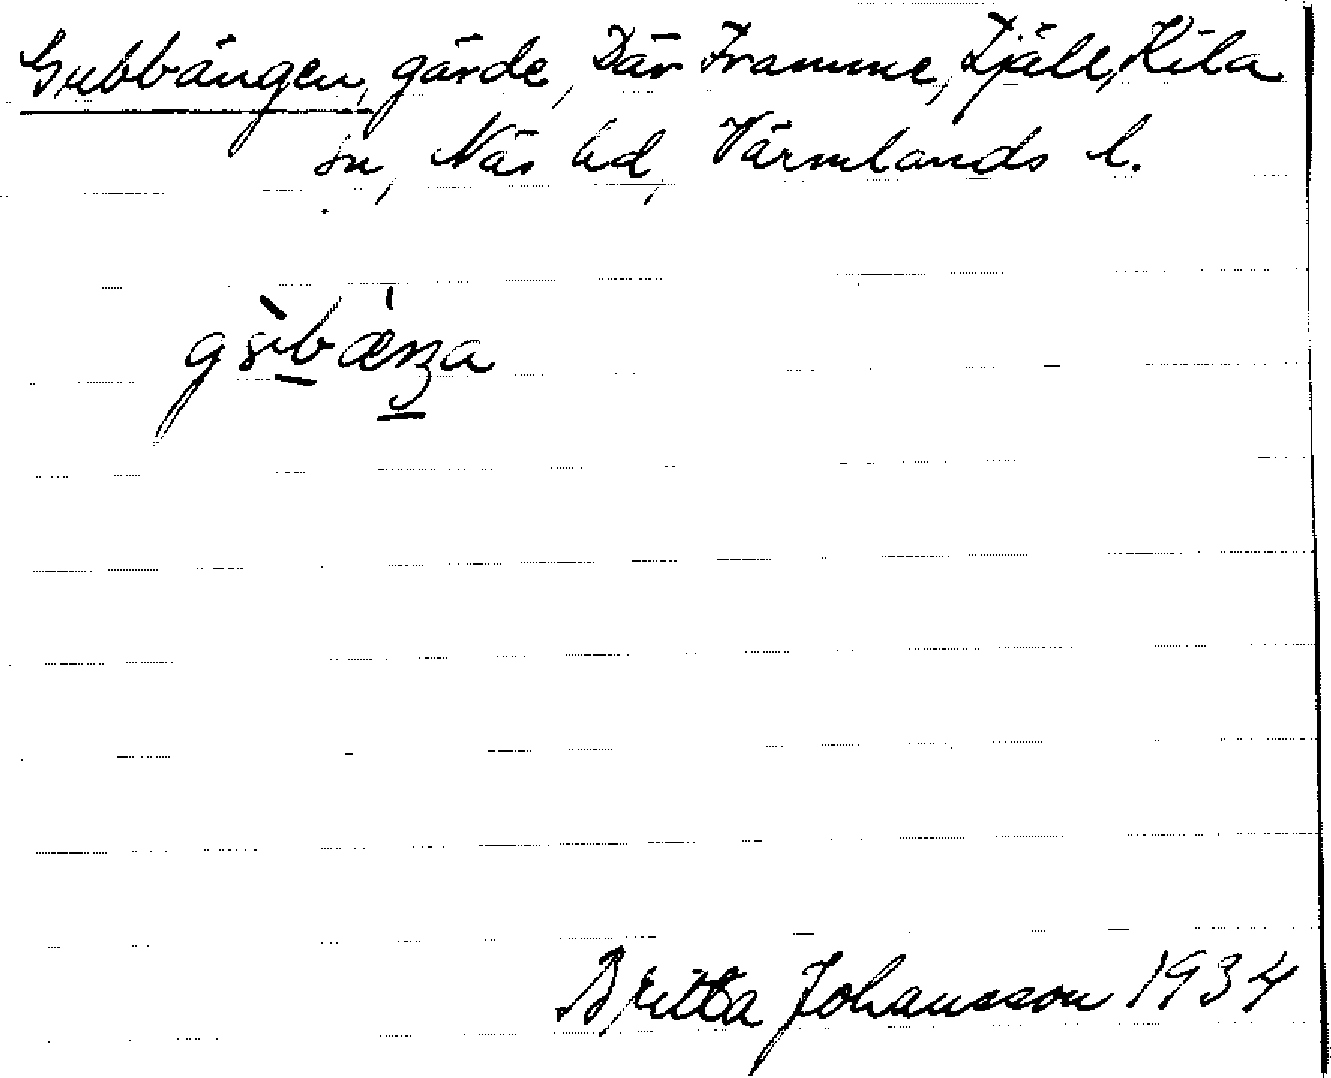 Gubbängen, gärde, Där Framme, Tjäll, Kila
sn, Näs hd, Värmlands l.
Britta Johansson 1934